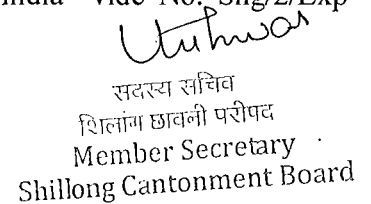 Vide No. Shg/2/Exp
सदस्य सचिव
शिलांग छावनी परीषद
Member Secretary
Shillong Cantonment Board